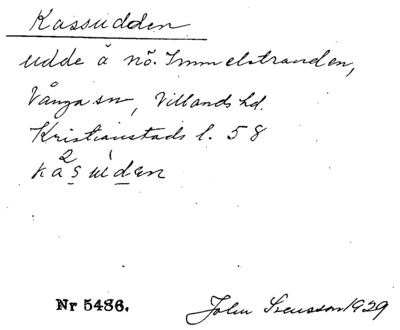 Kassudden
udde å nö. Immelstranden,
Vånga sn, Villands hd.
Kristianstads l. 58
kasuden
Nr 5486. John Svensson 1929